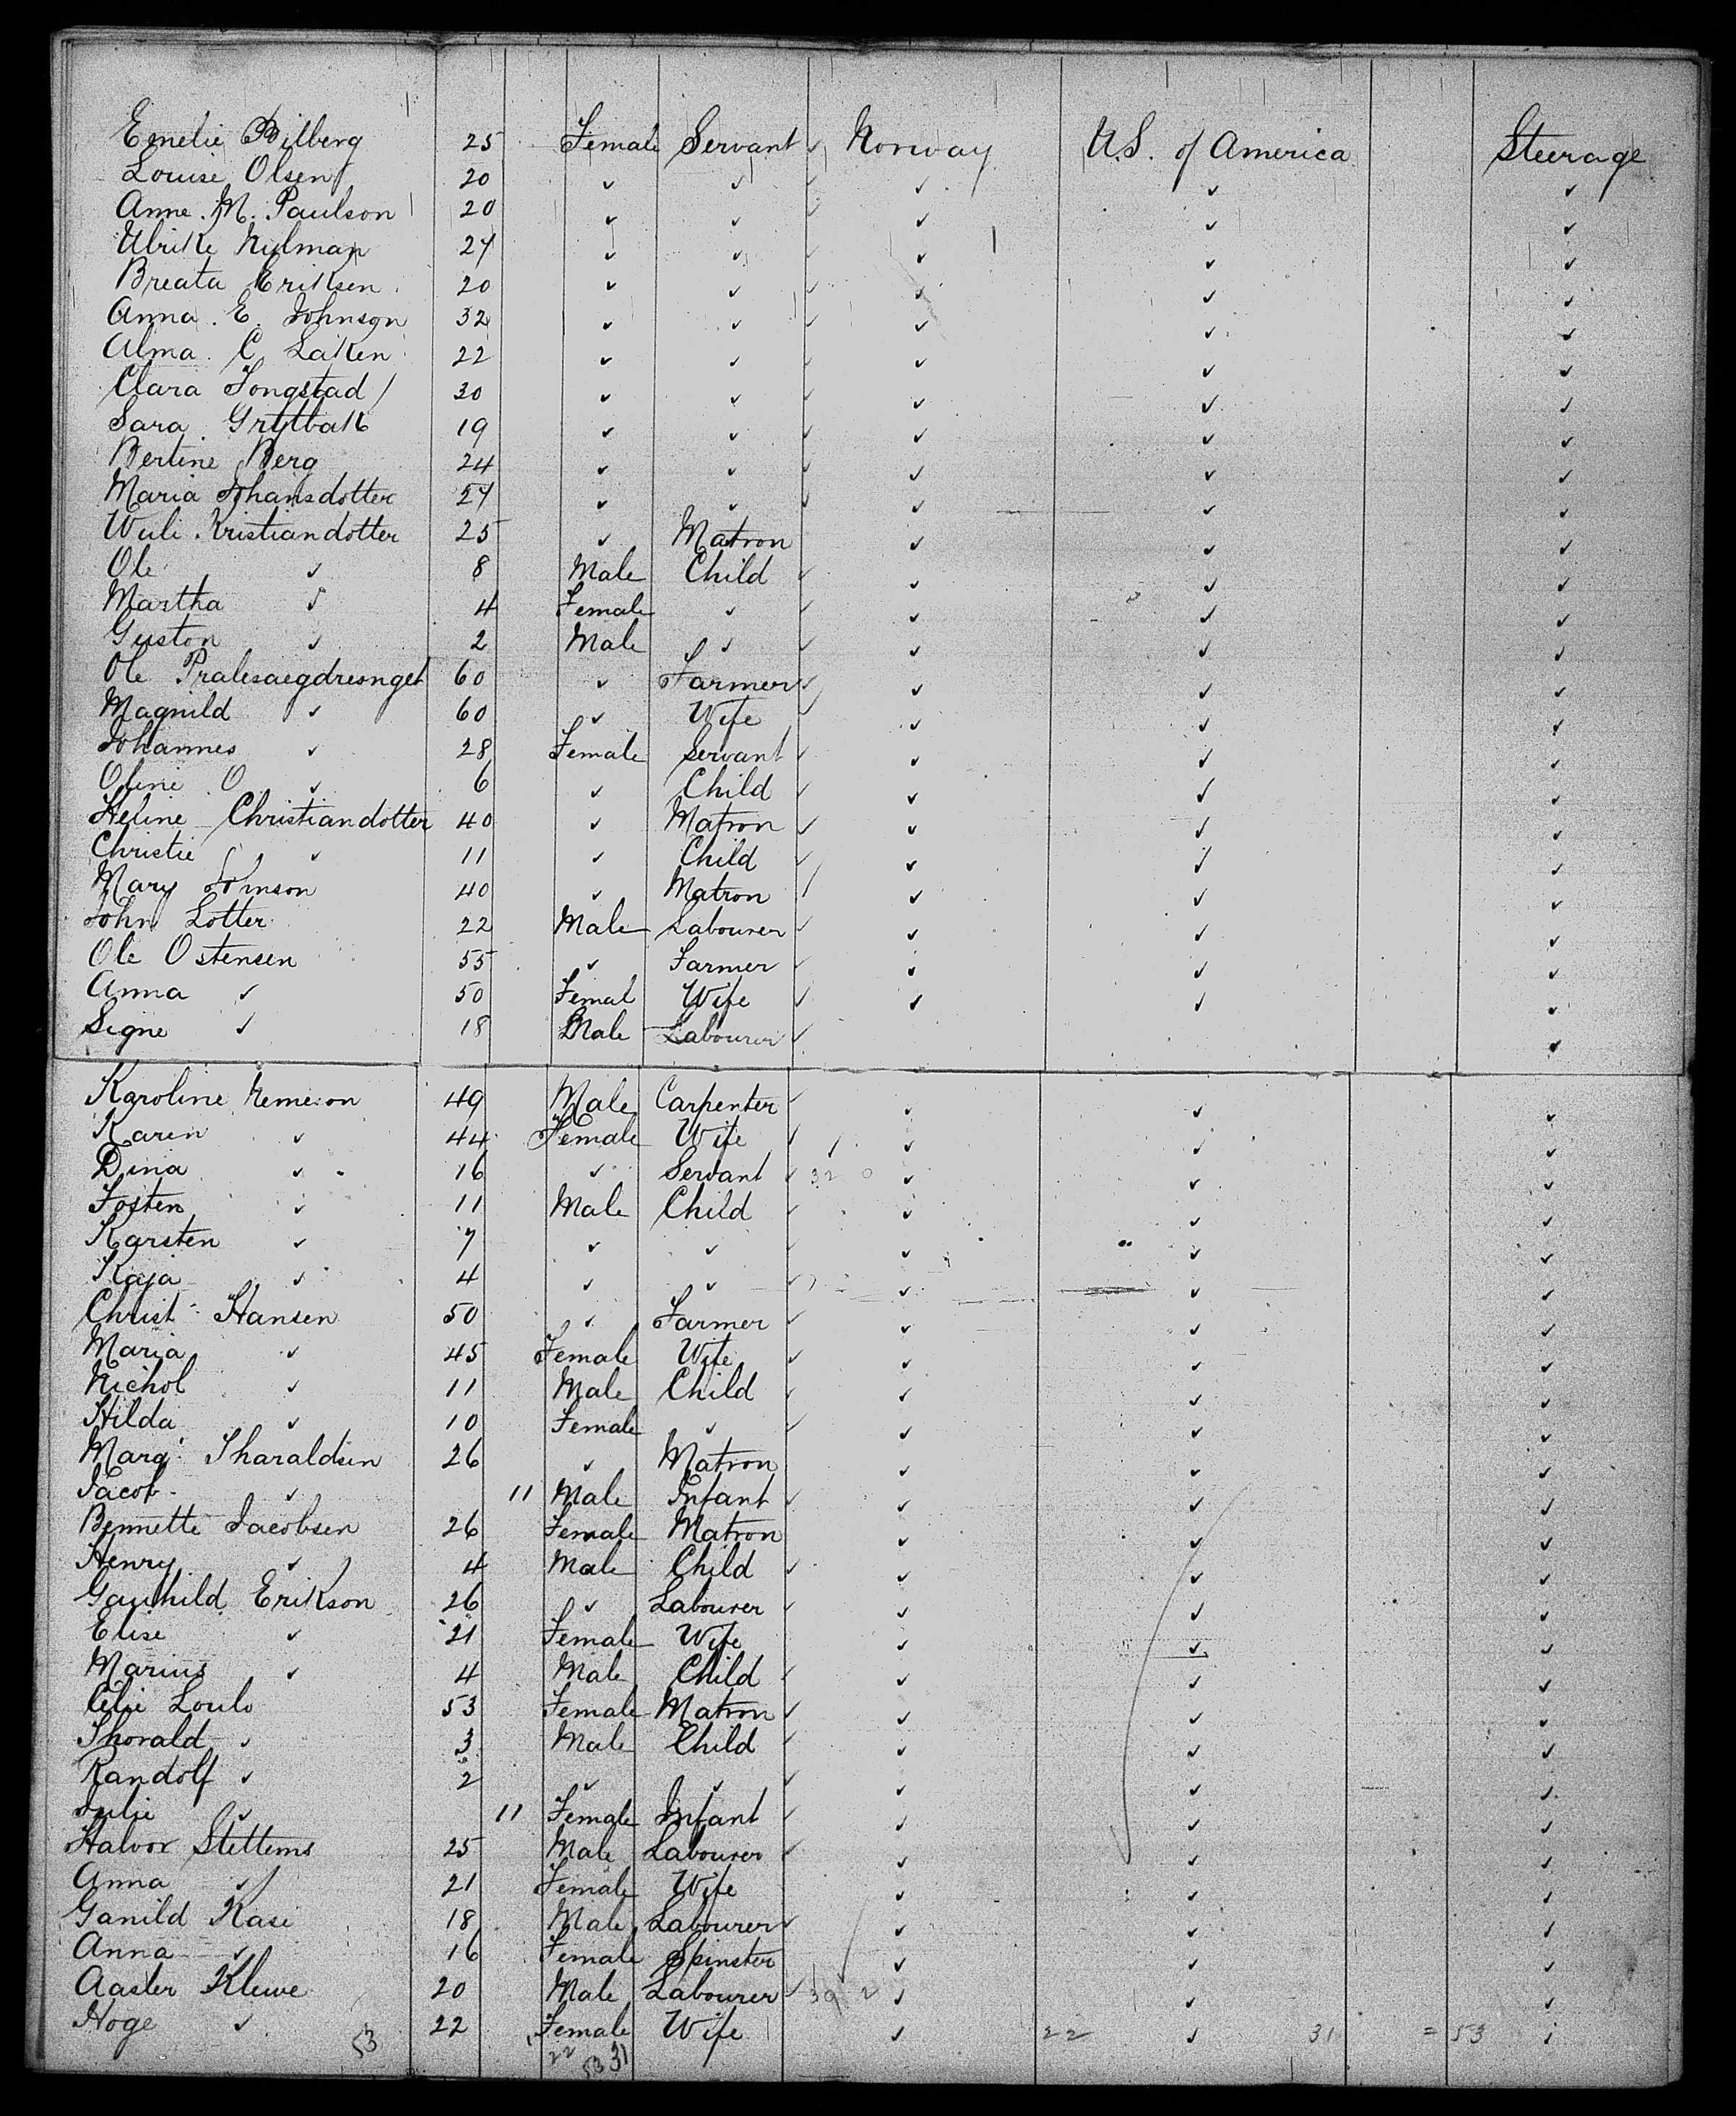 Emelie Bilberg 25 Female Servant ✓ Norway U.S. of America Steerage
Louise Olsen 20 ✓ ✓ ✓ ✓ ✓ ✓
Anne. M. Paulson 20 ✓ ✓ ✓ ✓ ✓ ✓
Ulrike Nilman 27 ✓ ✓ ✓ ✓ ✓ ✓
Breata Eriksen 20 ✓ ✓ ✓ ✓ ✓ ✓
Anna. E. Johnson 32 ✓ ✓ ✓ ✓ ✓ ✓
Alma. C. Laken 22 ✓ ✓ ✓ ✓ ✓ ✓
Clara Tongstad 30 ✓ ✓ ✓ ✓ ✓ ✓
Sara Grytbak 19 ✓ ✓ ✓ ✓ ✓ ✓
Bertine Berg 24 ✓ ✓ ✓ ✓ ✓ ✓
Maria Johansdotter 27 ✓ ✓ ✓ ✓ ✓ ✓
Wuli Kristiandotter 25 ✓ Matron ✓ ✓ ✓
Ole ✓ 8 Male Child ✓ ✓ ✓ ✓
Martha ✓ 4 Female ✓ ✓ ✓ ✓ ✓
Guston ✓ 2 Male ✓ ✓ ✓ ✓ ✓
Ole 60 ✓ Farmer ✓ ✓ ✓ ✓
Magnild ✓ 60 ✓ Wife ✓ ✓ ✓ ✓
Johannes ✓ 28 Female Servant ✓ ✓ ✓ ✓
Oline O ✓ 6 ✓ Child ✓ ✓ ✓ ✓
Heline Christiandotter 40 ✓ Matron ✓ ✓ ✓ ✓
Christie ✓ 11 ✓ Child ✓ ✓ ✓ ✓
Mary Johnson 40 ✓ Matron / ✓ ✓ ✓
John Lotter 22 Male Labourer ✓ ✓ ✓ ✓
Ole Ostensen 55 ✓ Farmer ✓ ✓ ✓ ✓
Anna ✓ 50 Femal Wife ✓ ✓ ✓ ✓
Signe ✓ 18 Male Labourer ✓ ✓
Karoline 49 Male Carpenter ✓ ✓ ✓ ✓
Karen ✓ 44 Female Wife ✓ ✓ ✓ ✓
Dina ✓ 16 ✓ Servant ✓ 32 0 ✓ ✓ ✓
Tosten ✓ 11 Male Child ✓ ✓ ✓ ✓
Karsten ✓ 7 ✓ ✓ ✓ ✓ ✓ ✓
Kaja ✓ 4 ✓ ✓ ✓ ✓ ✓ ✓
Christ Hansen 50 ✓ Farmer ✓ ✓ ✓ ✓
Maria ✓ 45 Female Wife ✓ ✓ ✓ ✓
Nichol ✓ 11 Male Child ✓ ✓ ✓ ✓
Hilda ✓ 10 Female ✓ ✓ ✓ ✓ ✓
Marg Tharaldsen 26 ✓ Matron ✓ ✓ ✓
Jacob ✓ 11 Male Infant ✓ ✓ ✓ ✓
Bennette Jacobsen 26 Female Matron ✓ ✓ ✓
Henry ✓ 4 Male Child ✓ ✓ ✓ ✓
Gauhild Erikson 26 ✓ Labourer ✓ ✓ ✓ ✓
Elise ✓ 21 Female Wife ✓ ✓ ✓
Marius ✓ 4 Male Child ✓ ✓ ✓ ✓
Celie 53 Female Matron ✓ ✓ ✓ ✓
Thorald ✓ 3 Male Child ✓ ✓ ✓ ✓
Randolf ✓ 2 ✓ ✓ ✓ ✓ ✓ ✓
Julie ✓ 11 Female Infant ✓ ✓ ✓ ✓
Halvor Stettems 25 Male Labourer ✓ ✓ ✓ ✓
Anna ✓ 21 Female Wife ✓ ✓ ✓
Ganild Kasi 18 Male Labourer ✓ ✓ ✓ ✓
Anna ✓ 16 Female Spinster ✓ ✓ ✓
Aasler Klewe 20 Male Labourer ✓ 39 2 ✓ ✓ ✓
Hoge ✓ 22 Female Wife ✓ 22 ✓ 31 = 53
53 22 53 31